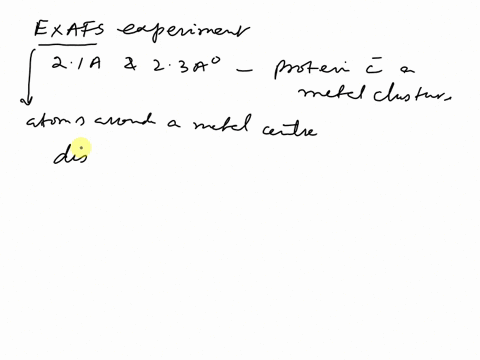 EXAFS experiment
2.1A & 2.3A° - protein c̄ a
metal cluster.
atoms around a metal centre
dis